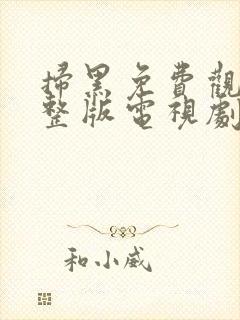 掃黑免費觀
整版電視劇
和小威